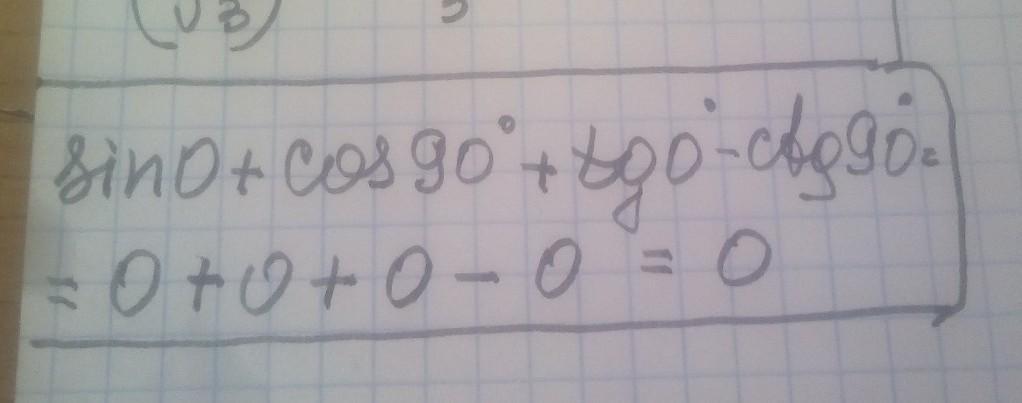 (√3) 3
sin0 + cos90° + tg0° - ctg90° =
= 0 + 0 + 0 - 0 = 0